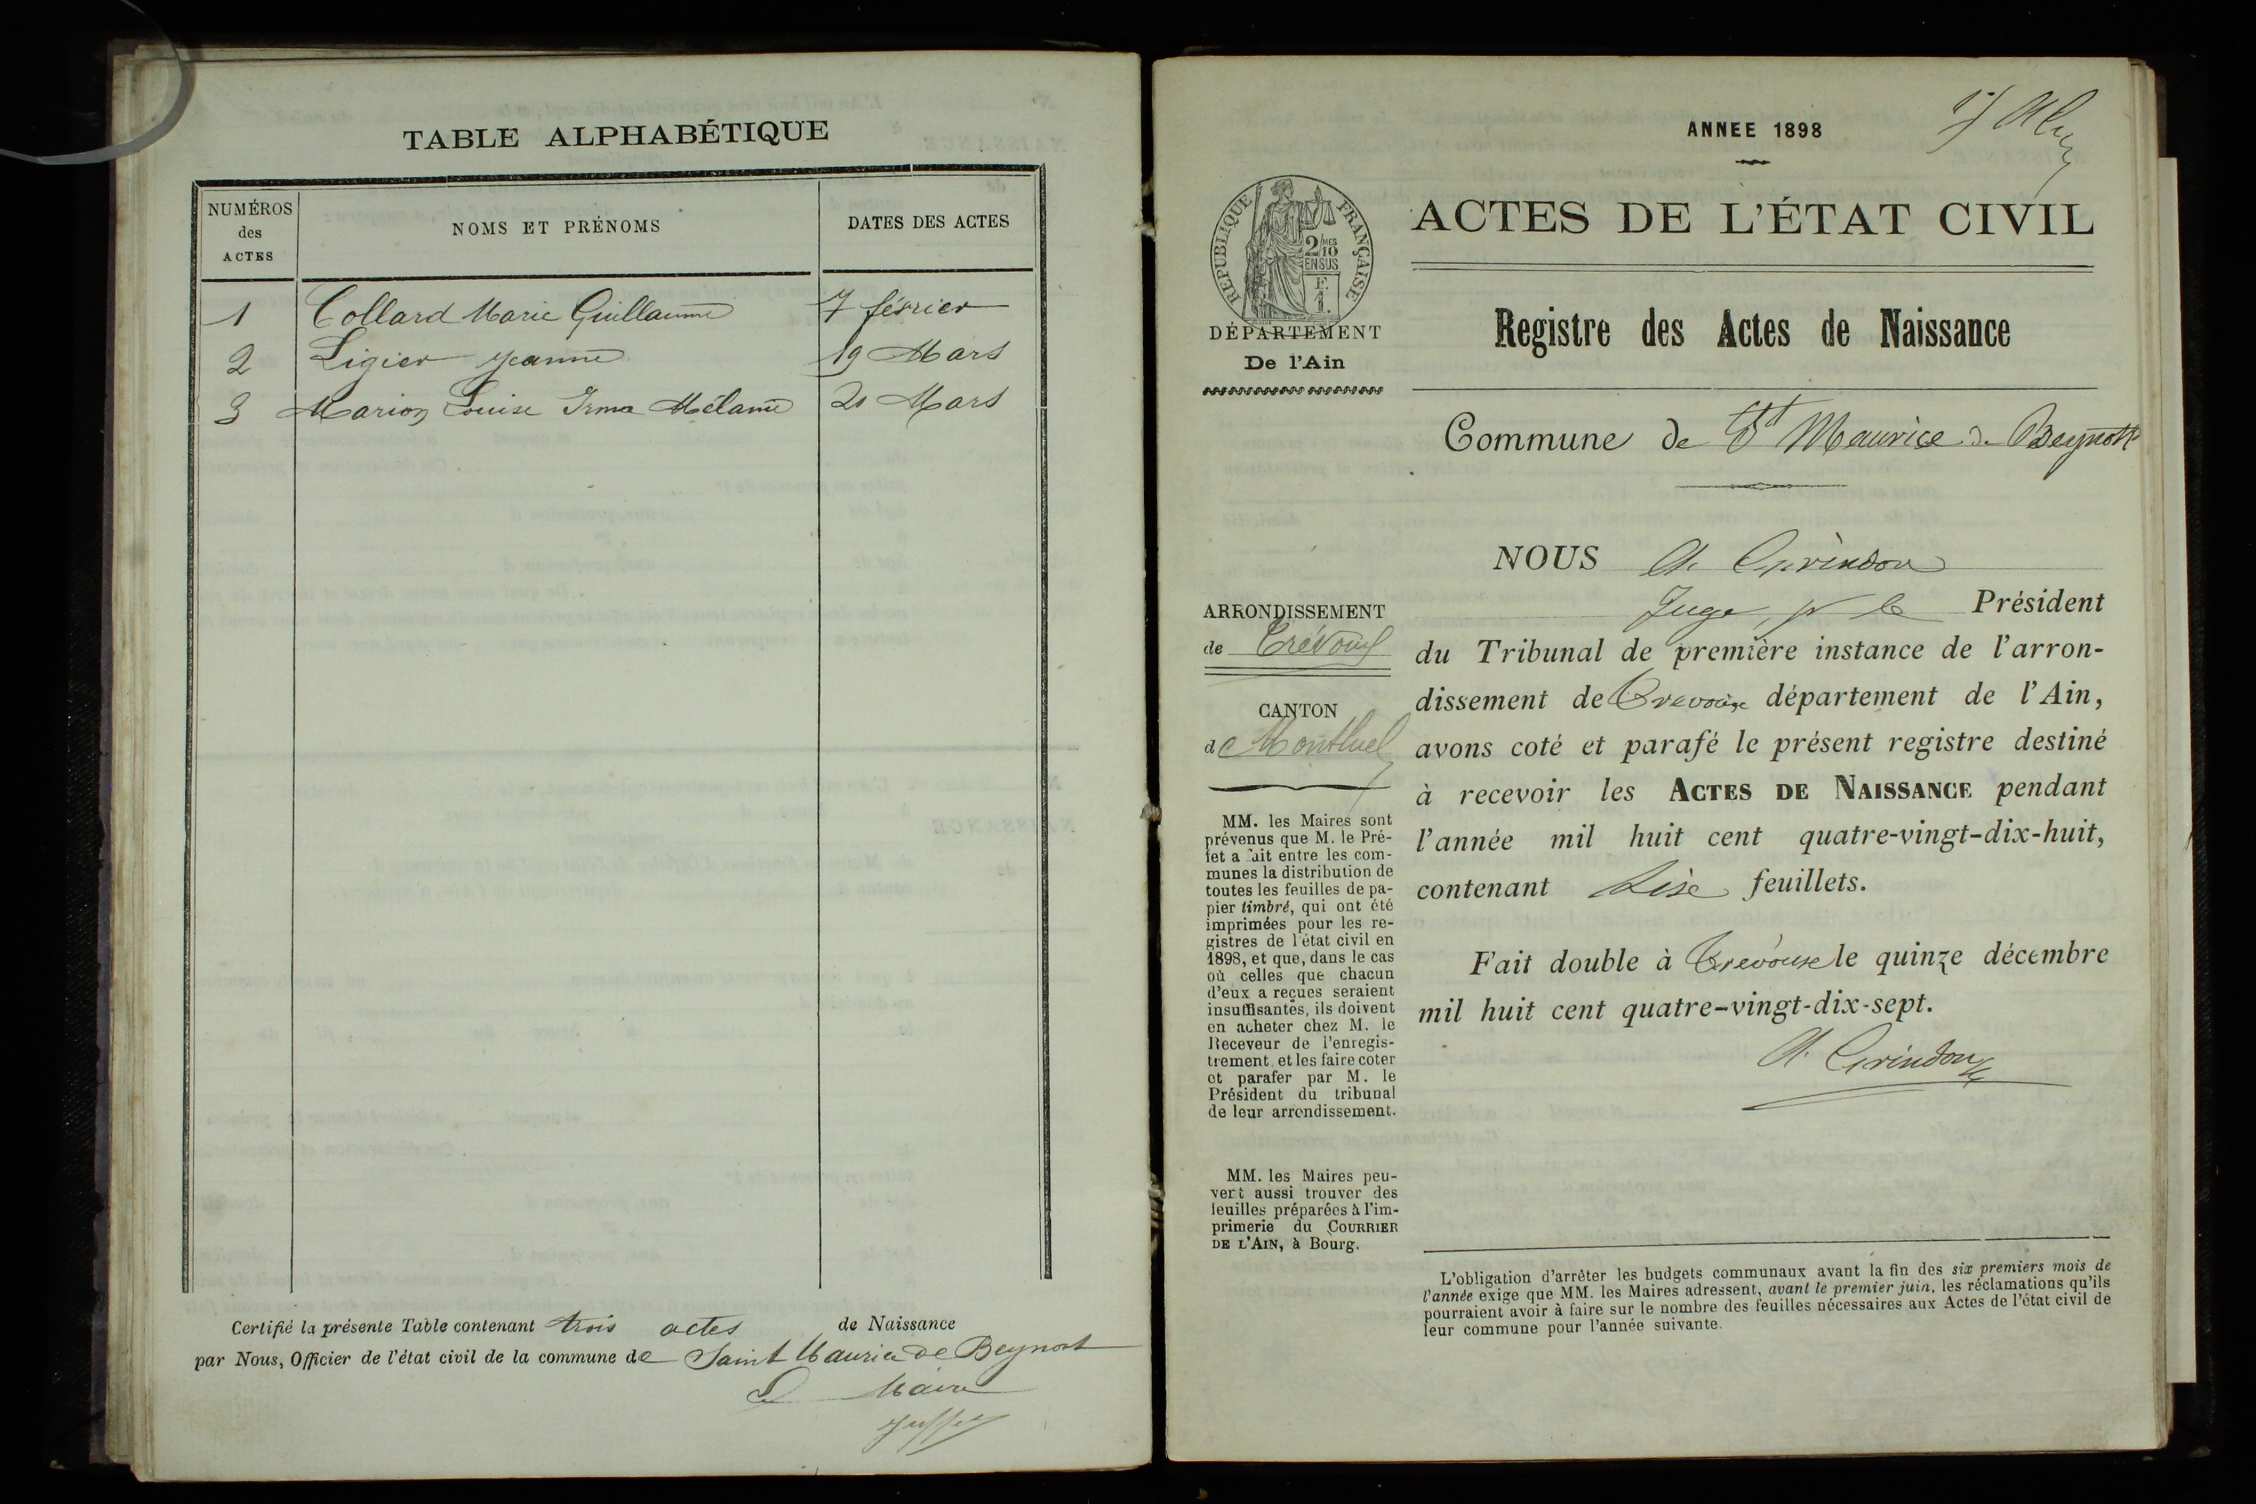 TABLE ALPHABÉTIQUE
NUMÉROS des ACTES
NOMS ET PRÉNOMS
DATES DES ACTES
1 Collard Marie Guillaume 7 février
2 Ligier Jeanne 19 Mars
3 Marion Louise Irma Mélanie 21 Mars
Certifié la présente Table contenant trois actes de Naissance
par Nous, Officier de l'état civil de la commune de Saint Maurice de Beynost
Le Maire
ANNEE 1898
ACTES DE L'ÉTAT CIVIL
RÉPUBLIQUE FRANÇAISE
2/10 MES
EN SUS
F.
1.
DÉPARTEMENT
De l'Ain
Registre des Actes de Naissance
Commune de St Maurice de Beynost
ARRONDISSEMENT
de Trévoux
CANTON
de Montluel
MM. les Maires sont
prévenus que M. le Pré-
fet a fait entre les com-
munes la distribution de
toutes les feuilles de pa-
pier timbré, qui ont été
imprimées pour les re-
gistres de l'état civil en
1898, et que, dans le cas
où celles que chacun
d'eux a reçues seraient
insuffisantes, ils doivent
en acheter chez M. le
Receveur de l'enregis-
trement et les faire coter
et parafer par M. le
Président du tribunal
de leur arrondissement.
MM. les Maires peu-
vent aussi trouver des
feuilles préparées à l'im-
primerie du COURRIER
DE L'AIN, à Bourg.
NOUS A. Grindon
Juge, pr le Président
du Tribunal de première instance de l'arron-
dissement de Trevoux département de l'Ain,
avons coté et parafé le présent registre destiné
à recevoir les ACTES DE NAISSANCE pendant
l'année mil huit cent quatre-vingt-dix-huit,
contenant seize feuillets.
Fait double à Trévoux le quinze décembre
mil huit cent quatre-vingt-dix-sept.
A. Grindon
L'obligation d'arrêter les budgets communaux avant la fin des six premiers mois de
l'année exige que MM. les Maires adressent, avant le premier juin, les réclamations qu'ils
pourraient avoir à faire sur le nombre des feuilles nécessaires aux Actes de l'état civil de
leur commune pour l'année suivante.